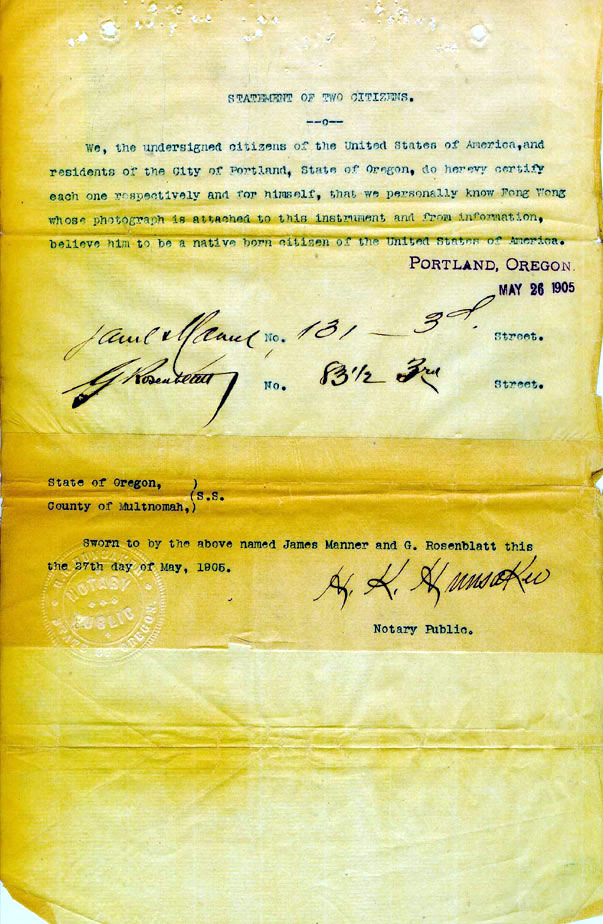 STATEMENT OF TWO CITIZENS.
--o--
We, the undersigned citizens of the United States of America,and
residents of the City of Portland, State of Oregon, do herevy certify
each one respectively and for himself, that we personally know Fong Wong
whose photograph is attached to this instrument and from information,
believe him to be a native born citizen of the United States of America.
PORTLAND, OREGON.
MAY 26 1905
No. 131 — 3d. Street.
G Rosenblatt No. 83 1/2 3rd Street.
State of Oregon, )
(S.S.
County of Multnomah,)
Sworn to by the above named James Manner and G. Rosenblatt this
the 27th day of May, 1905.
H. K. Hunsaker
Notary Public.
NOTARY
PUBLIC
STATE OF OREGON